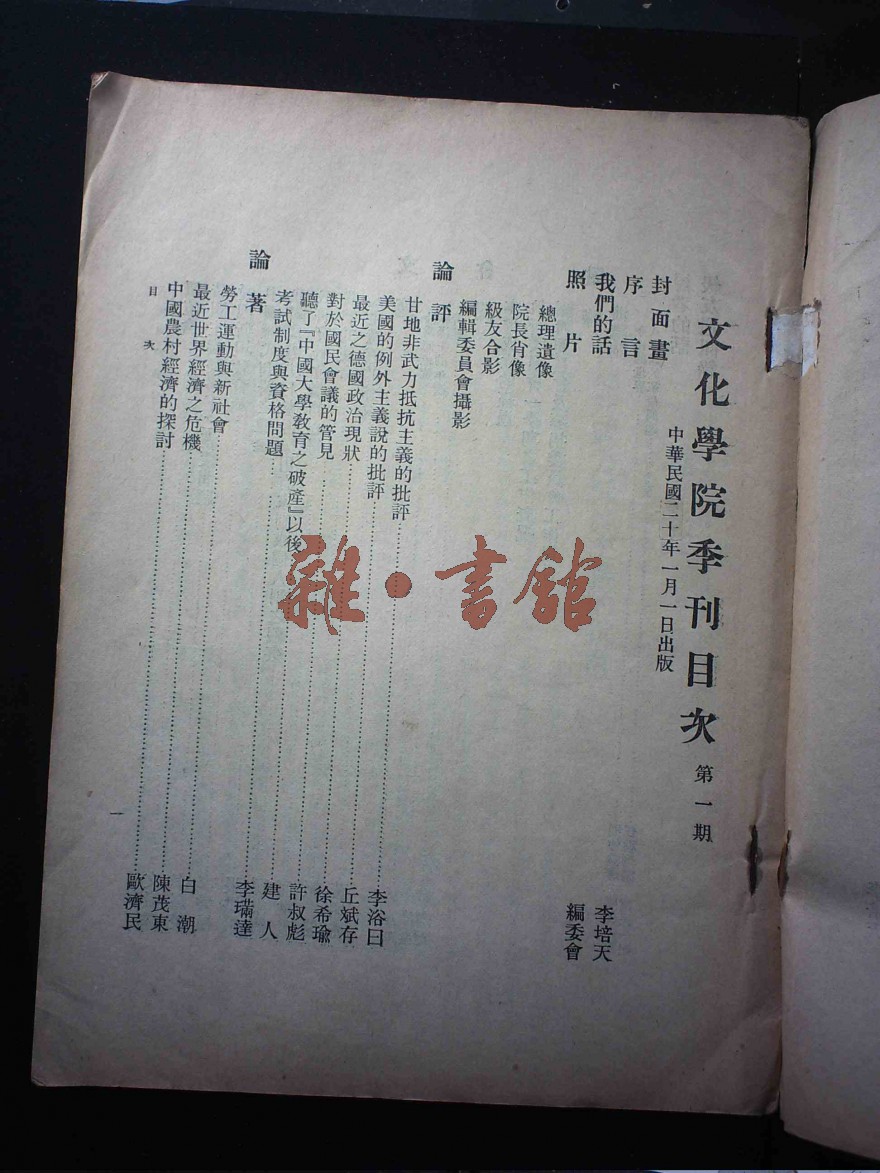 文化學院季刊目次 第一期
中華民國二十年一月一日出版
封面畫
序言 李培天
我們的話 編委會
照片
總理遺像
院長肖像
級友合影
編輯委員會攝影
論評
甘地非武力抵抗主義的批評……李浴日
美國的例外主義說的批評……丘斌存
最近之德國政治現狀……徐希瑜
對於國民會議的管見……許叔彪
聽了『中國大學教育之破產』以後……建人
考試制度與資格問題……李璊達
論著
勞工運動與新社會……白潮
最近世界經濟之危機……陳茂東
中國農村經濟的探討……歐濟民
目次 一
雜·書館